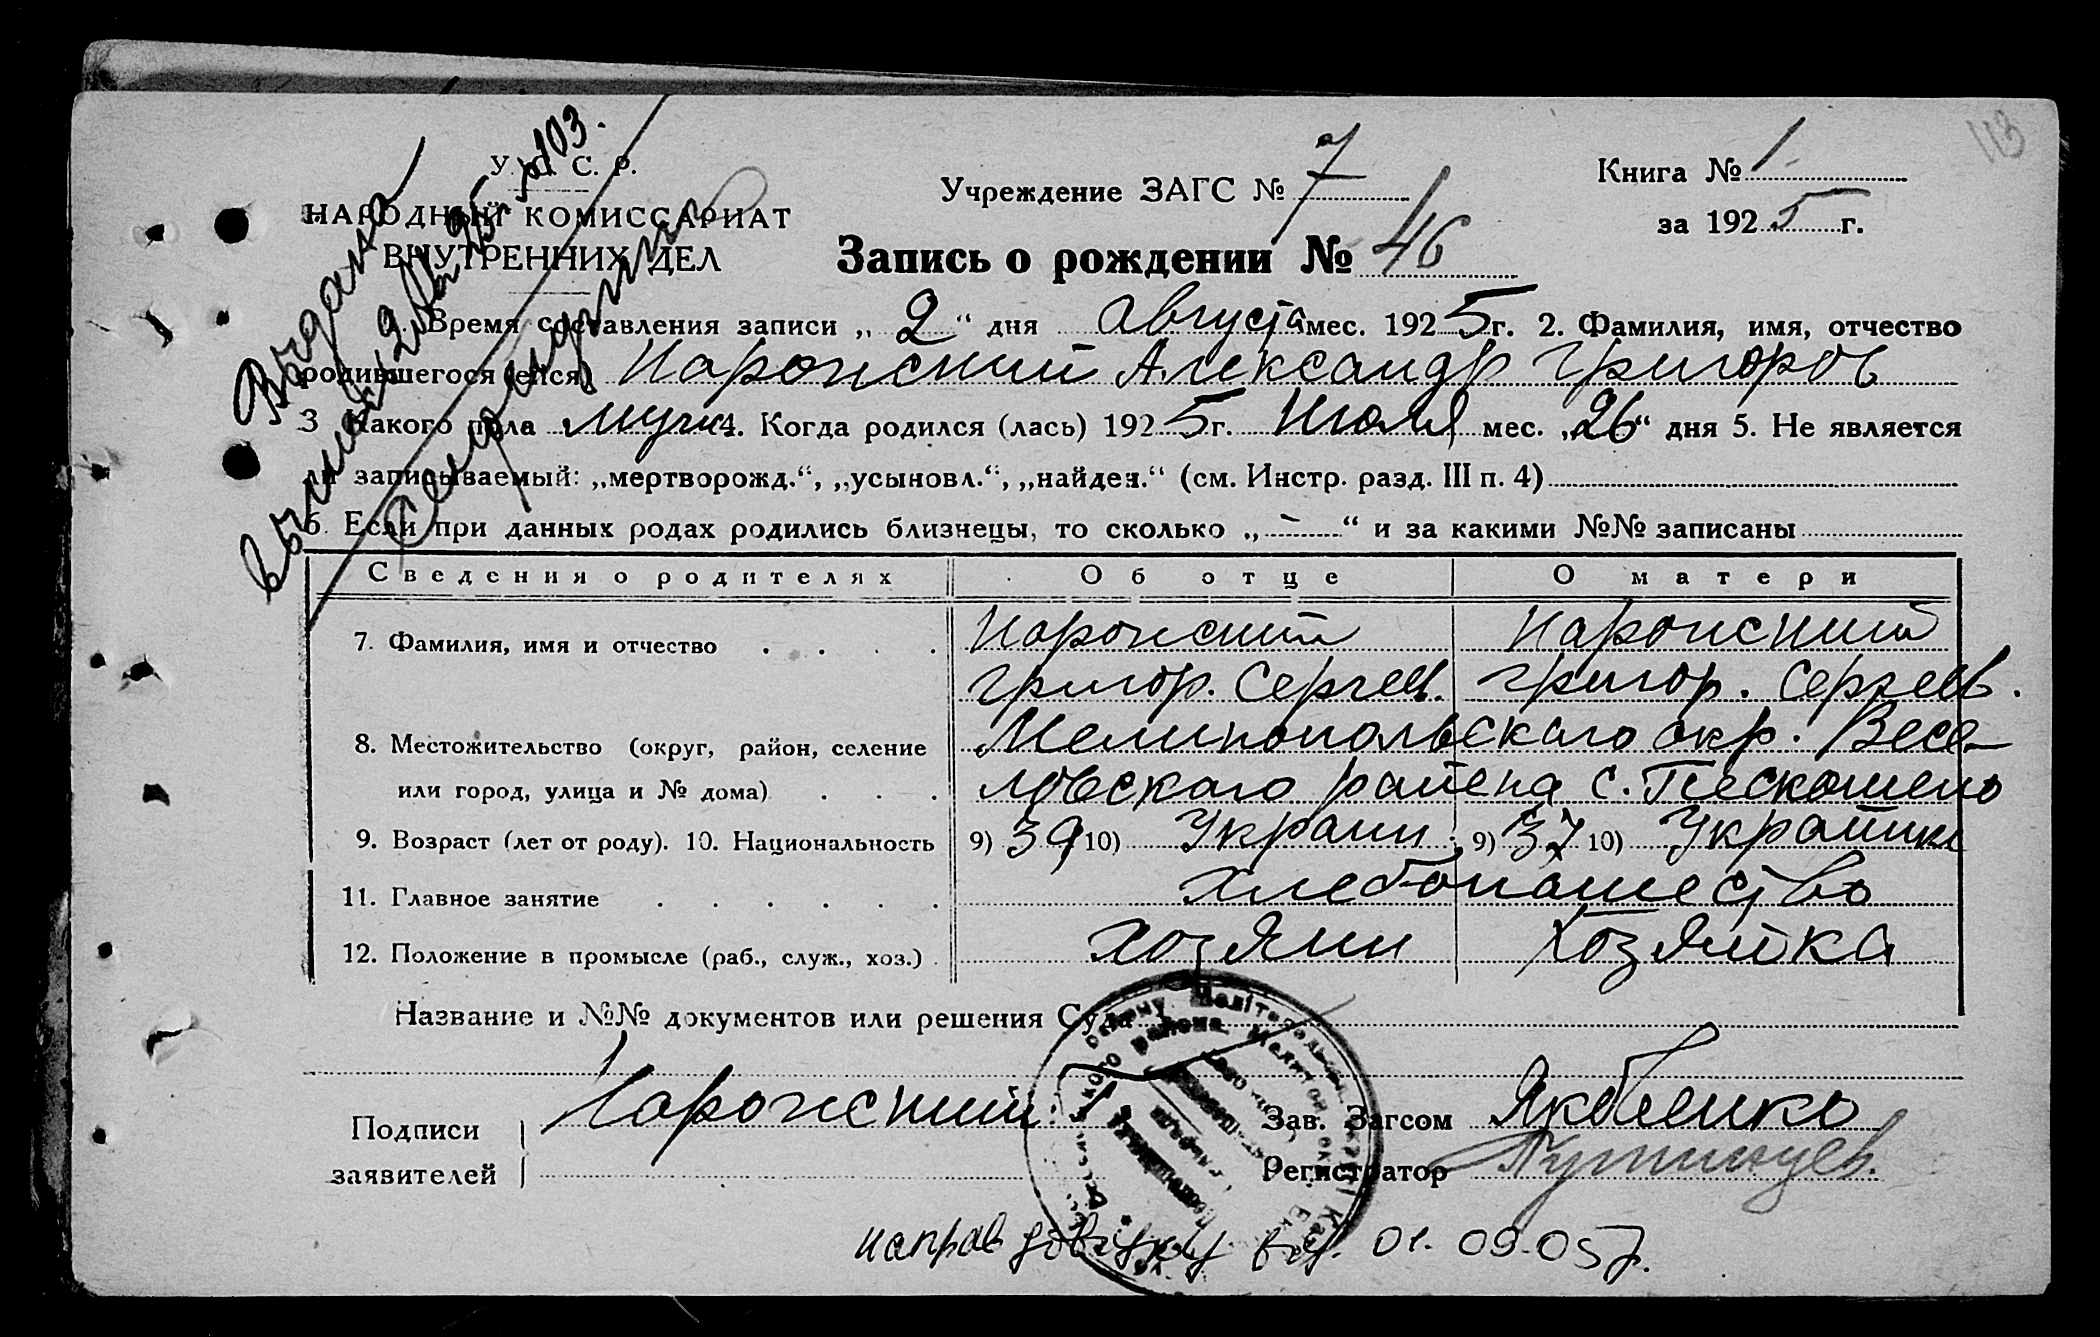 113
У. С. С. Р.
НАРОДНЫЙ КОМИССАРИАТ
ВНУТРЕННИХ ДЕЛ
Выдана
выпись
Учреждение ЗАГС № 7
Книга № 1
за 1925 г.
Запись о рождении № 46
Время составления записи „2“ дня Августа мес. 1925 г. 2. Фамилия, имя, отчество
родившегося (ейся) Наронский Александр Григоров
3 Какого пола мужс 4. Когда родился (лась) 1925 г. Июля мес. „26“ дня 5. Не является
ли записываемый: „мертворожд.“, „усыновл.“, „найден.“ (см. Инстр. разд. III п. 4)
6. Если при данных родах родились близнецы, то сколько „-“ и за какими №№ записаны
Сведения о родителях Об отце О матери
7. Фамилия, имя и отчество Наронский Наронский
Григор. Сергеев. Григор. Сергеев.
8. Местожительство (округ, район, селение Мелитопольскаго окр. Весе-
или город, улица и № дома) ловскаго района с.
9. Возраст (лет от роду). 10. Национальность 9) 39 10) Украин 9) 37 10) Украинк
11. Главное занятие хлебопашество
12. Положение в промысле (раб., служ., хоз.) хозяин Хозяйка
Название и №№ документов или решения Суда
Подписи заявителей Наронский
Зав. Загсом Якобенко
Регистратор
направ довідку від. 01. 09. 05